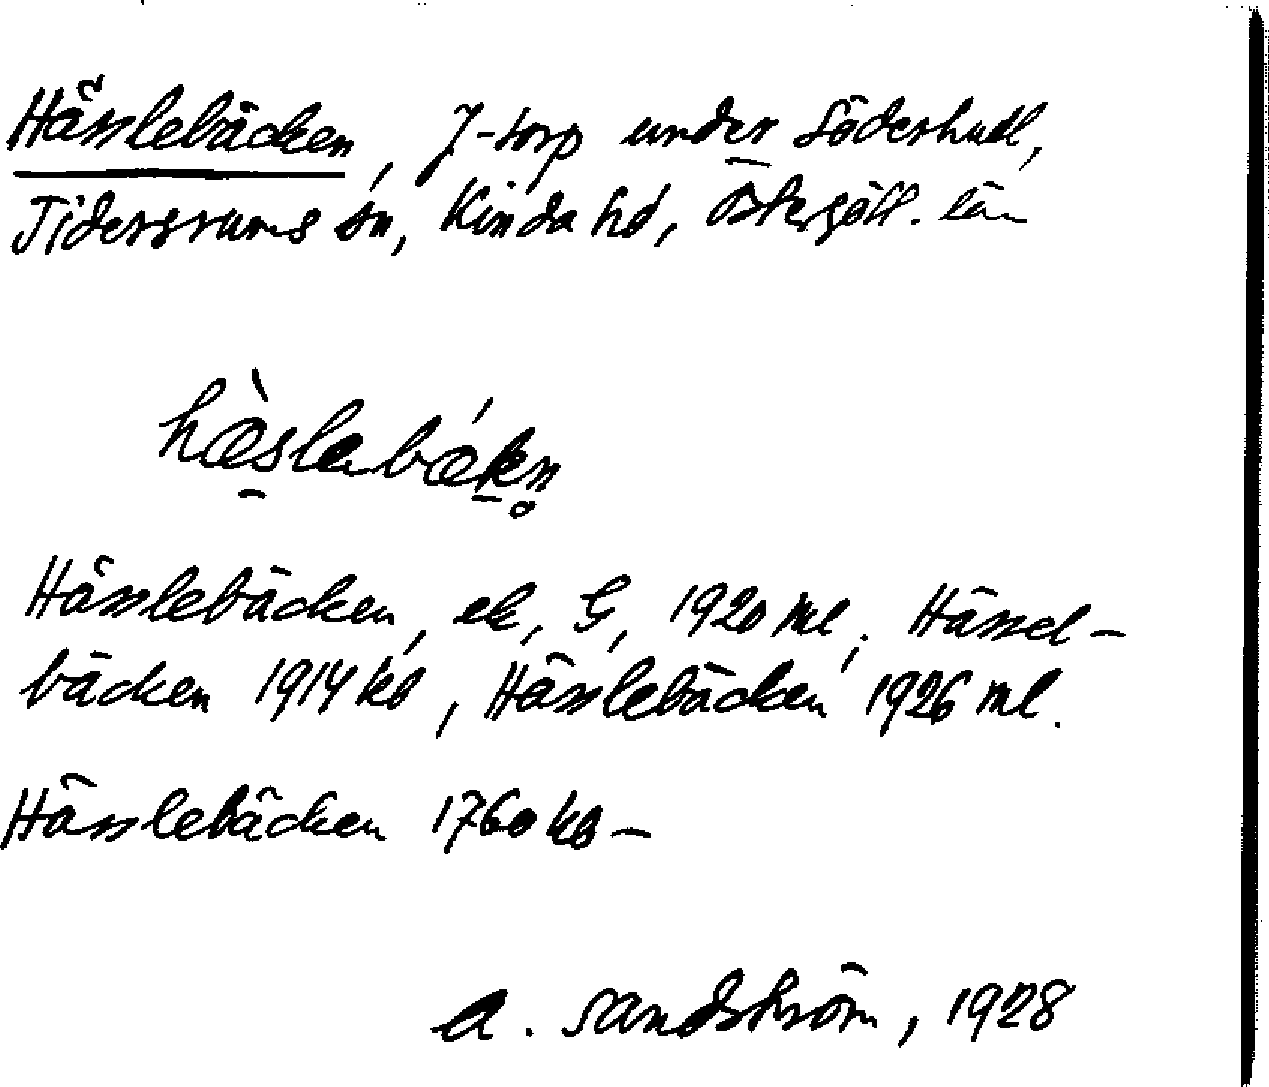 Hässlebäcken, J-torp under Söderhult,
Tidersrums sn, Kinda hd, Östergötl. län
hæ̀slabǽkn̥
Hässlebäcken, ek, G, 1920 ml; Hässel-
bäcken 1914 kb, Hässlebäcken 1926 ml.
Hässlebäcken 1760 kb –
A. Sandström, 1928